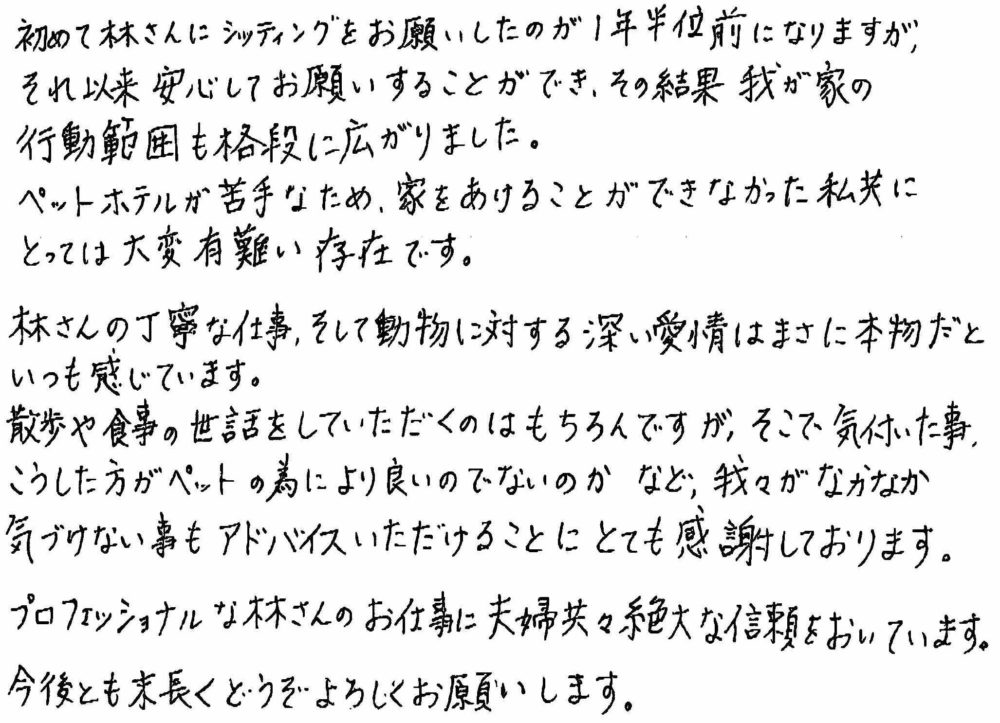 初めて林さんにシッティングをお願いしたのが1年半位前になりますが、
それ以来安心してお願いすることができ、その結果 我が家の
行動範囲も格段に広がりました。
ペットホテルが苦手なため、家をあけることができなかった私共に
とっては大変有難い存在です。
林さんの丁寧な仕事、そして動物に対する深い愛情はまさに本物だと
いつも感じています。
散歩や食事の世話をしていただくのはもちろんですが、そこで気付いた事、
こうした方がペットの為により良いのでないのか など、我々がなかなか
気づけない事もアドバイスいただけることにとても感謝しております。
プロフェッショナルな林さんのお仕事に夫婦共々絶大な信頼をおいています。
今後とも末長くどうぞよろしくお願いします。